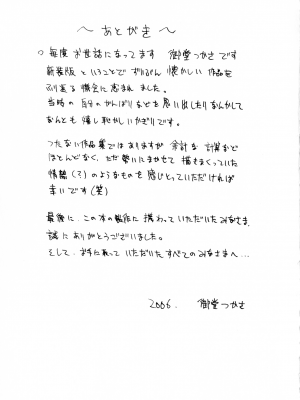 ～あとがき～
○毎度お世話になってます 御堂つかさです
新装版ということでずいぶん懐かしい作品を
ふり返る機会に恵まれました。
当時の自分のがんばりなどを思い出したりなんかして
なんとも嬉し恥かしいかぎりです。
つたない作品集ではありますが 余計な計算など
ほとんどなく、ただ勢いにまかせて描きまくっていた
情熱(?)のようなものを感じとっていただければ
幸いです(笑)
最後に、この本の製作に携わっていただいたみなさま、
誠にありがとうございました。
そして、お手に取っていただいたすべてのみなさまへ…
2006. 御堂つかさ